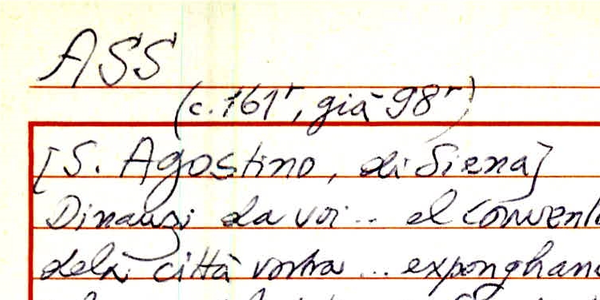 ASS
(c. 161r, già 98r)
[S. Agostino, di Siena]
Dinanzi da voi... el convent
dela città vostra... exponghan